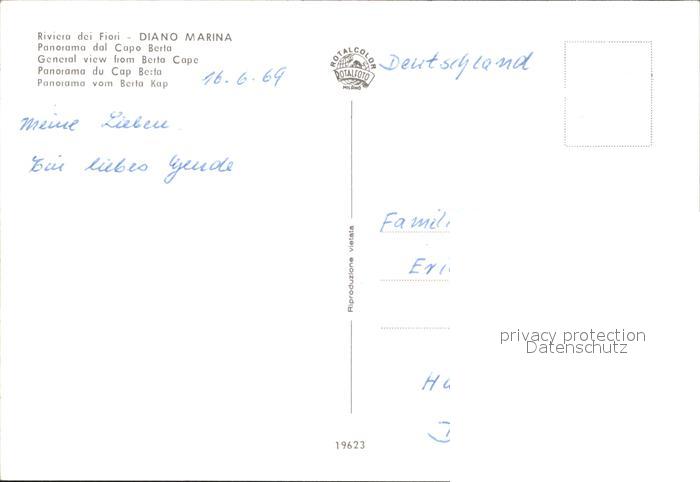 Riviera dei Fiori - DIANO MARINA
Panorama dal Capo Berta
General view from Berta Cape
Panorama du Cap Berta
Panorama vom Berta Kap
16.6.69
Meine Lieben
Ein liebes
ROTALCOLOR
ROTALFOTO
MILANO
Deutschland
Famili
Eri
Ha
Riproduzione vietata
19623
privacy protection
Datenschutz